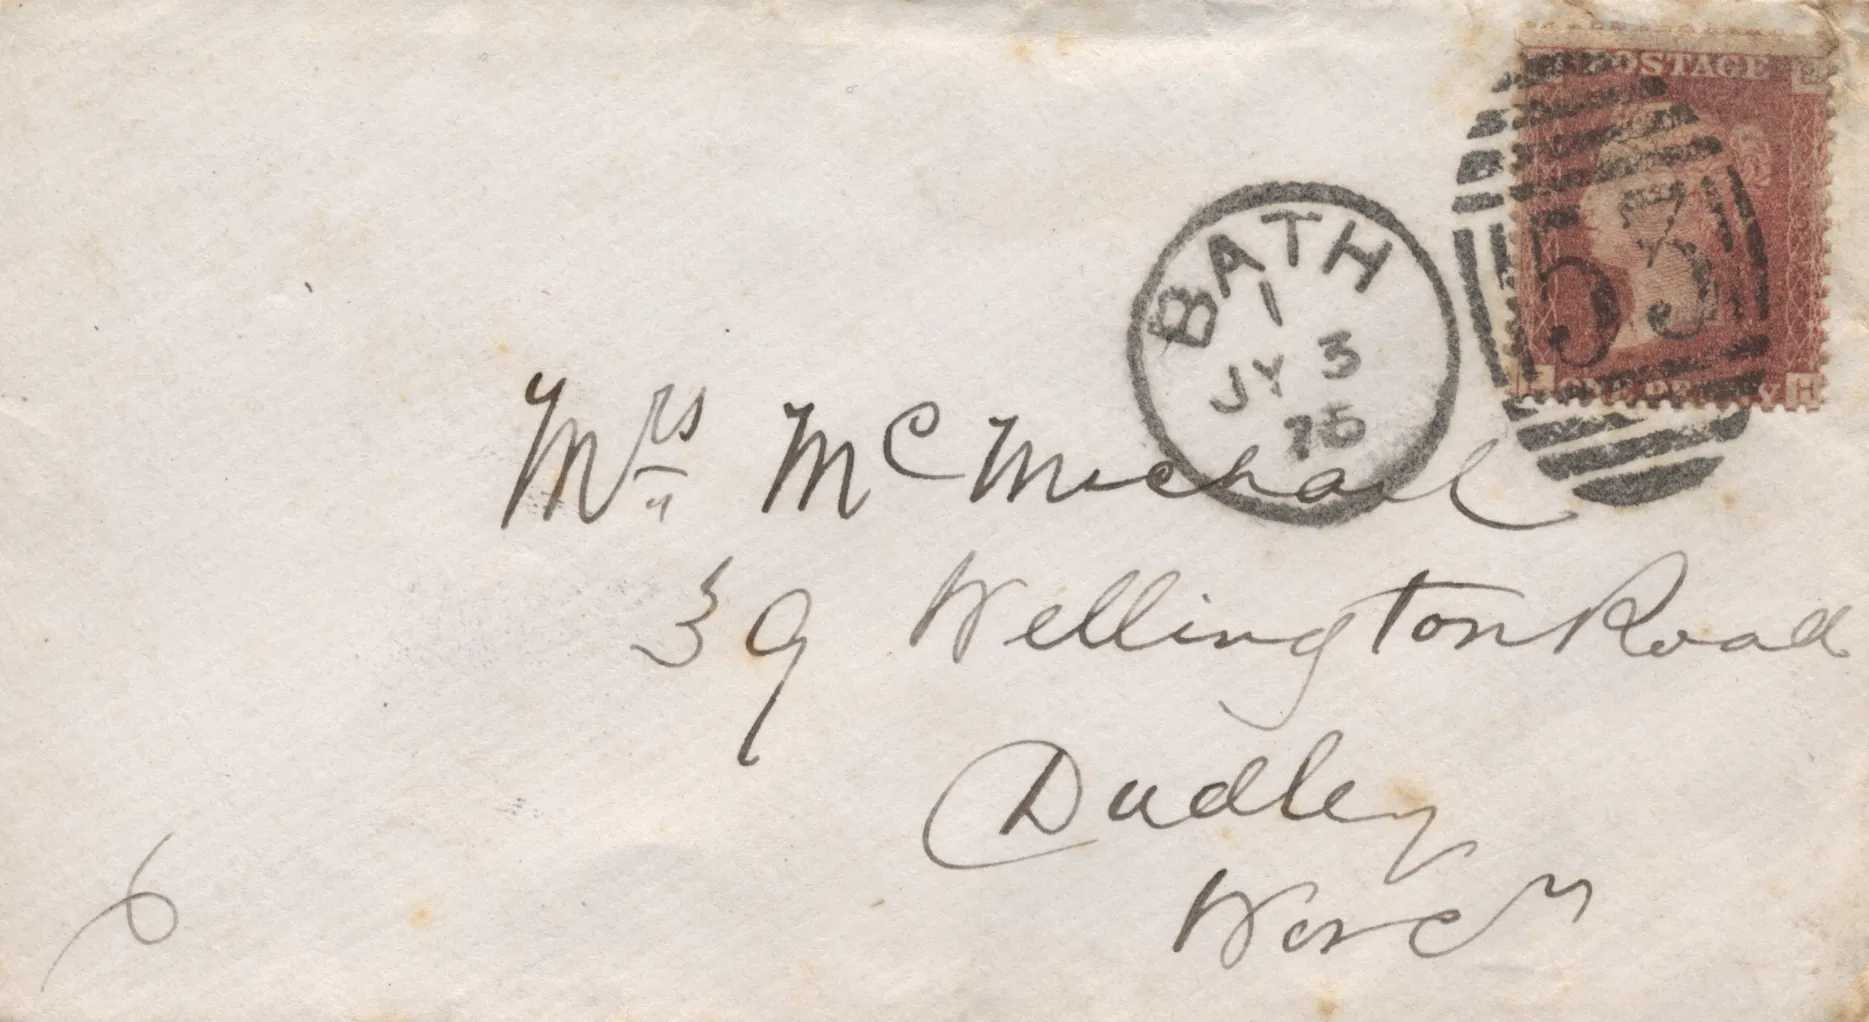 POSTAGE
53
ONE PENNY
H
BATH
1
JY 3
76
Mrs McMichael
39 Wellington Road
Dudley
Worcr
6